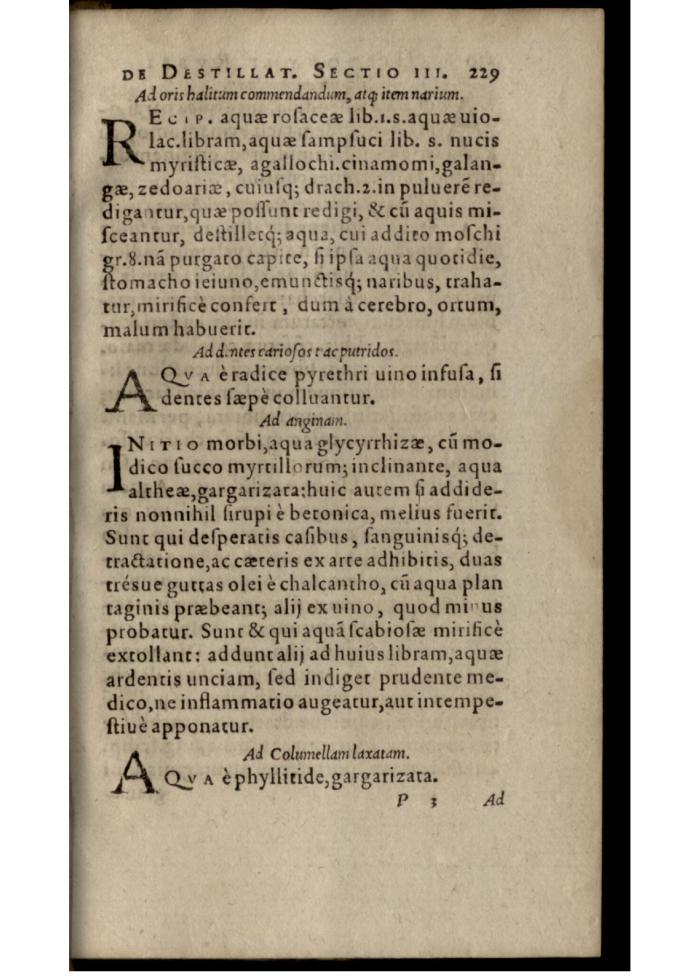 DE DESTILLAT. SECTIO III. 229
Ad oris halitum commendandum, atq; item narium.
RECIP. aquæ rosaceæ lib.1.s.aquæ uio-
lac.libram,aquæ sampsuci lib. s. nucis
myristicæ, agallochi.cinamomi,galan-
gæ, zedoariæ, cuiusq; drach.2.in puluerē re-
digantur,quæ possunt redigi, & cū aquis mi-
sceantur, destilletq́; aqua, cui addito moschi
gr.8.nā purgato capite, si ipsa aqua quotidie,
stomacho ieiuno,emunctisq́; naribus, traha-
tur,mirificè confert, dum à cerebro, ortum,
malum habuerit.
Ad dentes cariosos ac putridos.
AQVA è radice pyrethri uino infusa, si
dentes sæpè colluantur.
Ad anginam.
INITIO morbi,aqua glycyrrhizæ, cū mo-
dico succo myrtillorum; inclinante, aqua
altheæ,gargarizata:huic autem si addide-
ris nonnihil sirupi è betonica, melius fuerit.
Sunt qui desperatis casibus, sanguinisq́; de-
tractatione,ac cæteris ex arte adhibitis, duas
trésue guttas olei è chalcantho, cū aqua plan
taginis præbeant; alij ex uino, quod minus
probatur. Sunt & qui aquā scabiosæ mirificè
extollant: addunt alij ad huius libram,aquæ
ardentis unciam, sed indiget prudente me-
dico,ne inflammatio augeatur,aut intempe-
stiuè apponatur.
Ad Columellam laxatam.
AQVA è phyllitide,gargarizata.
P 3 Ad